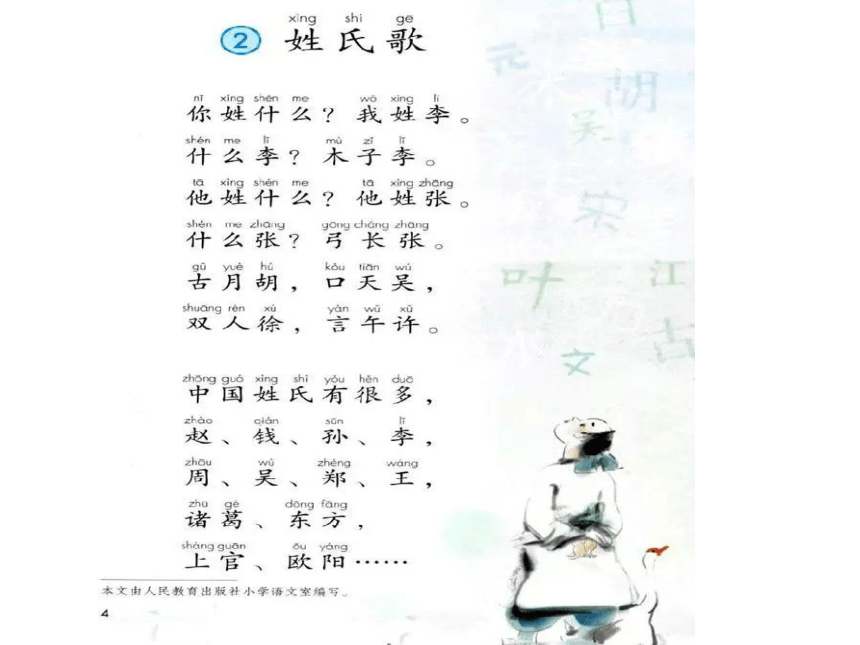 xìng shì gē
② 姓氏歌
nǐ xìng shén me wǒ xìng lǐ
你姓什么？我姓李。
shén me lǐ mù zǐ lǐ
什么李？木子李。
tā xìng shén me tā xìng zhāng
他姓什么？他姓张。
shén me zhāng gōng cháng zhāng
什么张？弓长张。
gǔ yuè hú kǒu tiān wú
古月胡，口天吴，
shuāng rén xú yán wǔ xǔ
双人徐，言午许。
zhōng guó xìng shì yǒu hěn duō
中国姓氏有很多，
zhào qián sūn lǐ
赵、钱、孙、李，
zhōu wú zhèng wáng
周、吴、郑、王，
zhū gě dōng fāng
诸葛、东方，
shàng guān ōu yáng
上官、欧阳……
本文由人民教育出版社小学语文室编写。
4
元
胡
吴
宋
叶
江
古
文